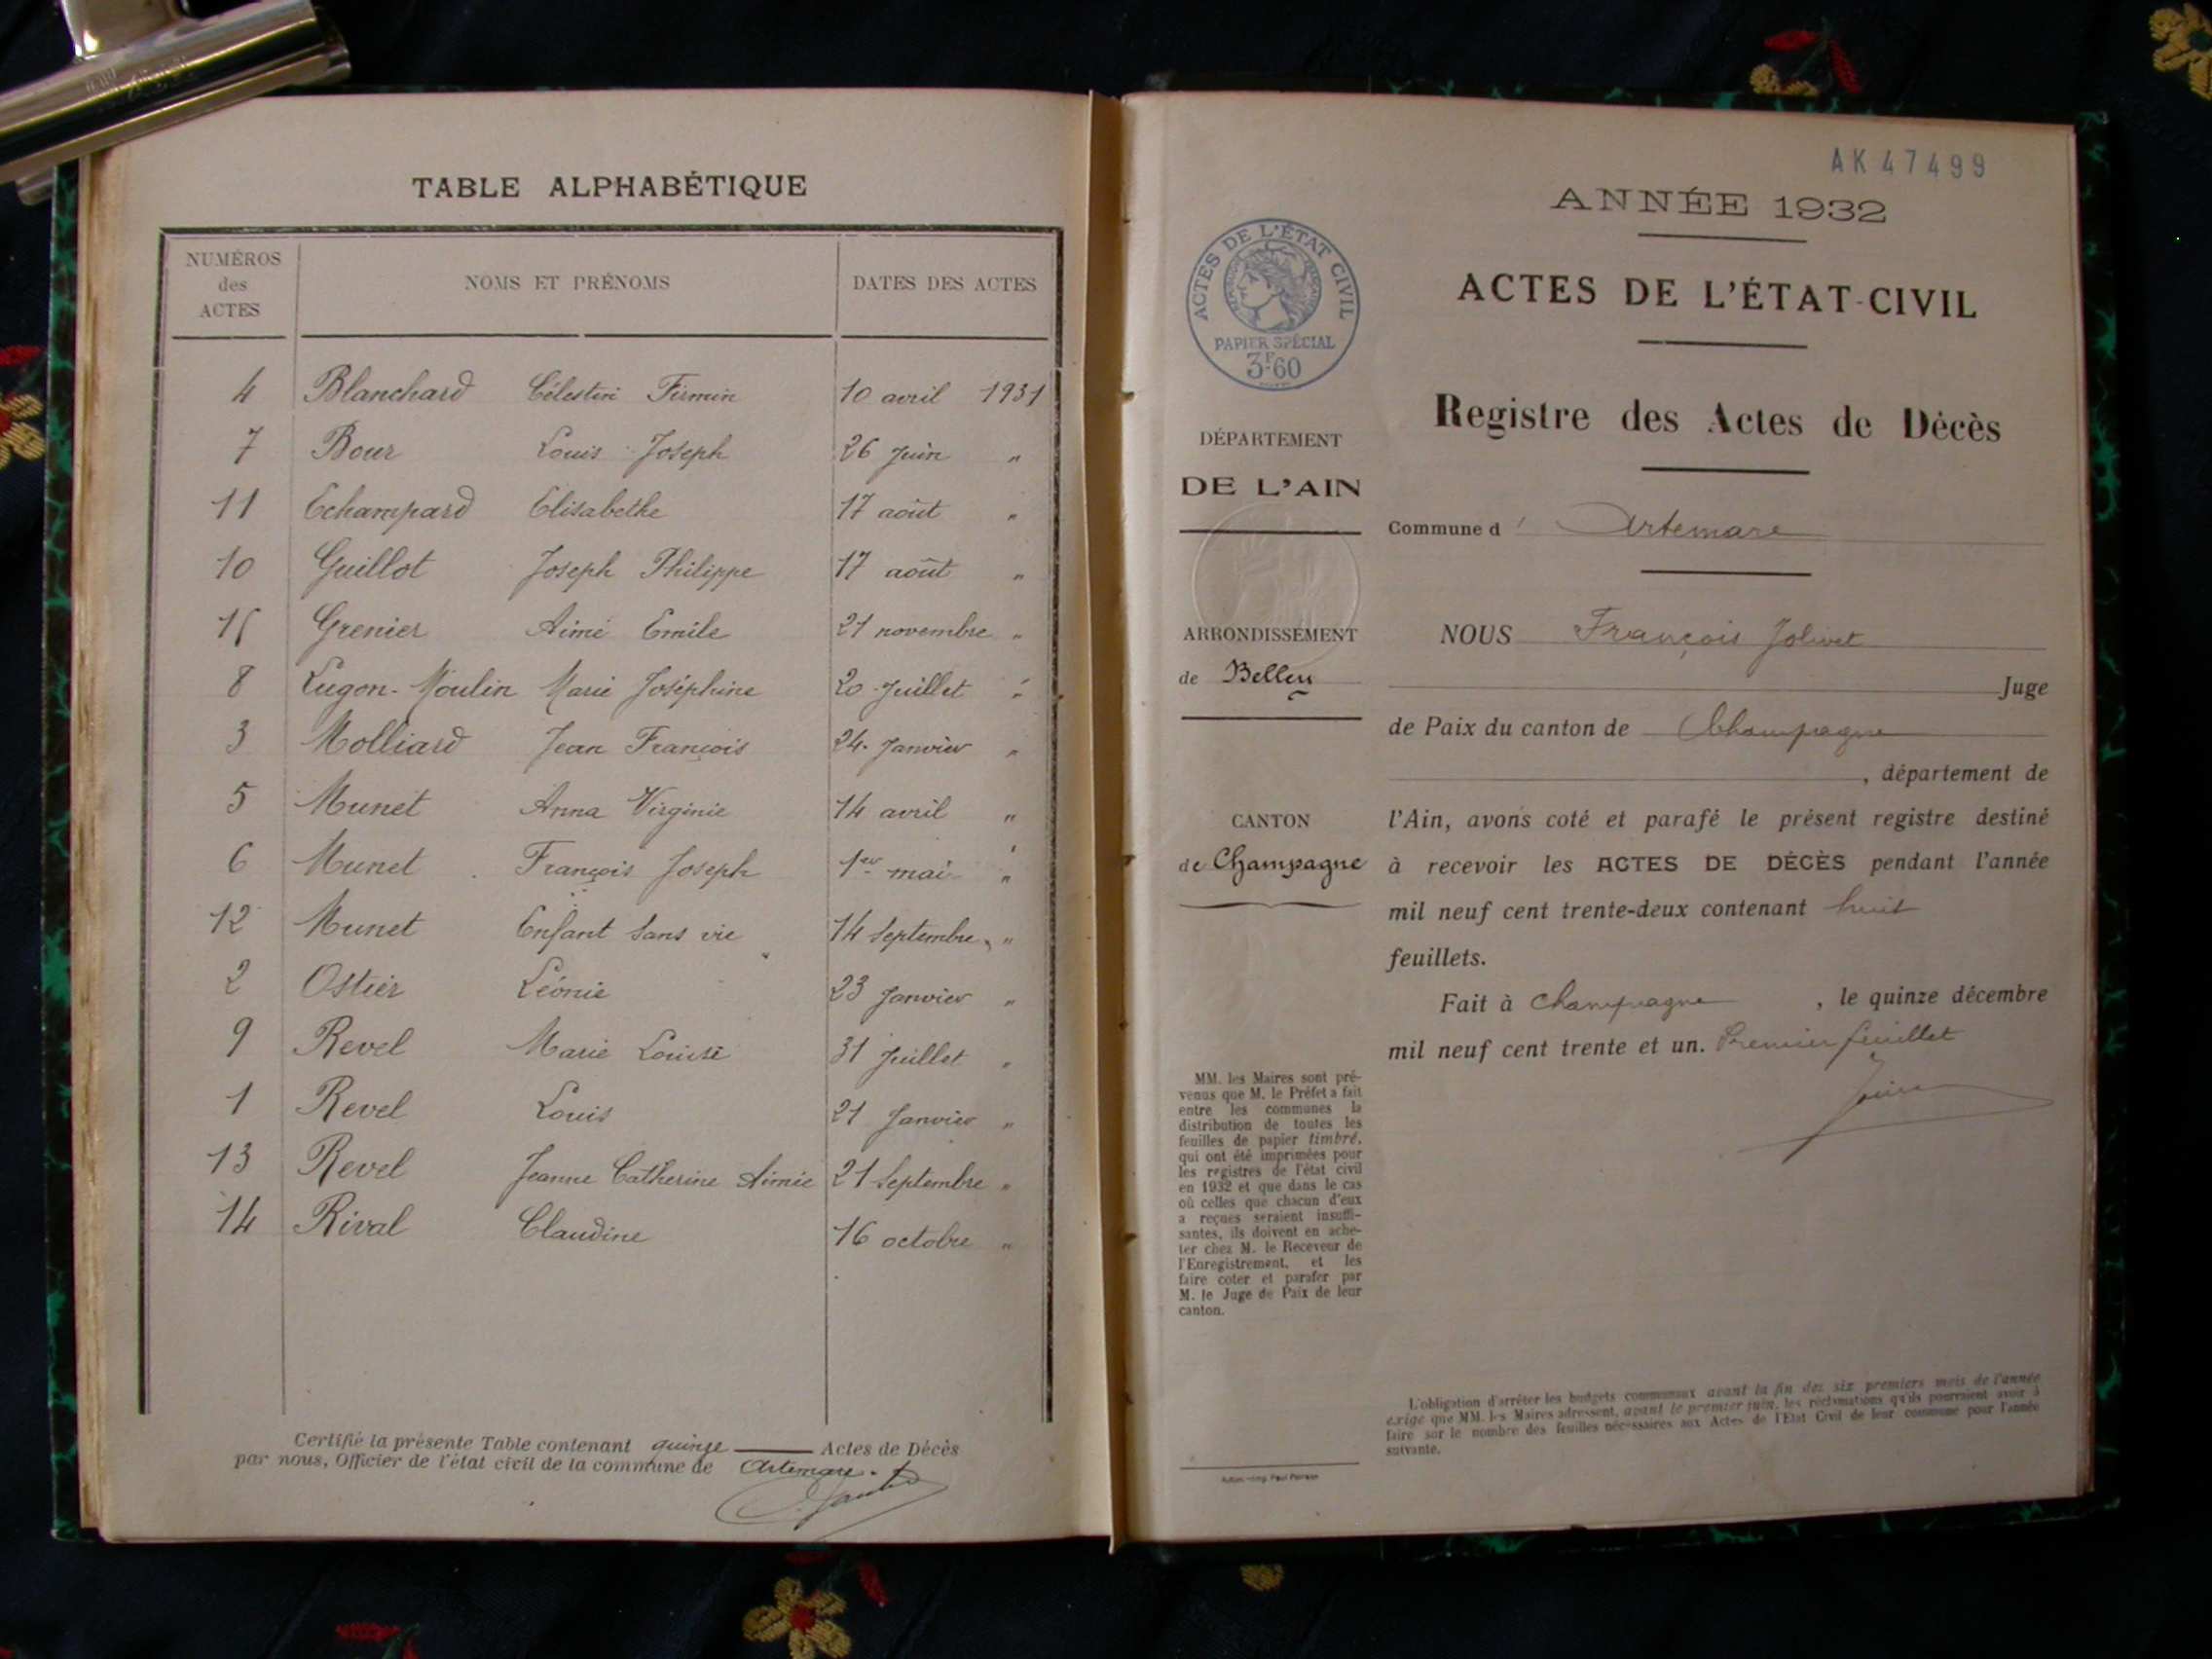 TABLE ALPHABÉTIQUE
NUMÉROS des ACTES
NOMS ET PRÉNOMS
DATES DES ACTES
4 Blanchard Célestin Firmin 10 avril 1931
7 Bour Louis Joseph 26 Juin "
11 Echampard Elisabethe 17 août "
10 Guillot Joseph Philippe 17 août "
15 Grenier Aimé Emile 21 novembre "
8 Lugon-Moulin Marie Joséphine 20 Juillet "
3 Molliard Jean François 24 Janvier "
5 Munet Anna Virginie 14 avril "
6 Munet François Joseph 1er mai "
12 Munet Enfant sans vie 14 Septembre "
2 Ostier Léonie 23 Janvier "
9 Revel Marie Louise 31 Juillet "
1 Revel Louis 21 Janvier "
13 Revel Jeanne Catherine Aimée 21 Septembre "
14 Rival Claudine 16 octobre "
Certifié la présente Table contenant quinze Actes de Décès
par nous, Officier de l'état civil de la commune de Artemare.
AK47499
ANNÉE 1932
ACTES DE L'ÉTAT CIVIL
PAPIER SPÉCIAL
3F60
ACTES DE L'ÉTAT-CIVIL
Registre des Actes de Décès
DÉPARTEMENT
DE L'AIN
Commune d' Artemare
ARRONDISSEMENT
de Belley
CANTON
de Champagne
NOUS François Jolivet
Juge
de Paix du canton de Champagne
, département de
l'Ain, avons coté et parafé le présent registre destiné
à recevoir les ACTES DE DÉCÈS pendant l'année
mil neuf cent trente-deux contenant huit
feuillets.
Fait à Champagne, le quinze décembre
mil neuf cent trente et un. Premier feuillet
MM. les Maires sont pré-
venus que M. le Préfet a fait
entre les communes la
distribution de toutes les
feuilles de papier timbré,
qui ont été imprimées pour
les registres de l'état civil
en 1932 et que dans le cas
où celles que chacun d'eux
a reçues seraient insuffi-
santes, ils doivent en ache-
ter chez M. le Receveur de
l'Enregistrement, et les
faire coter et parafer par
M. le Juge de Paix de leur
canton.
L'obligation d'arrêter les budgets communaux avant la fin des six premiers mois de l'année
exige que MM. les Maires adressent, avant le premier juin, les réclamations qu'ils pourraient avoir à
faire sur le nombre des feuilles nécessaires aux Actes de l'Etat Civil de leur commune pour l'année
suivante.